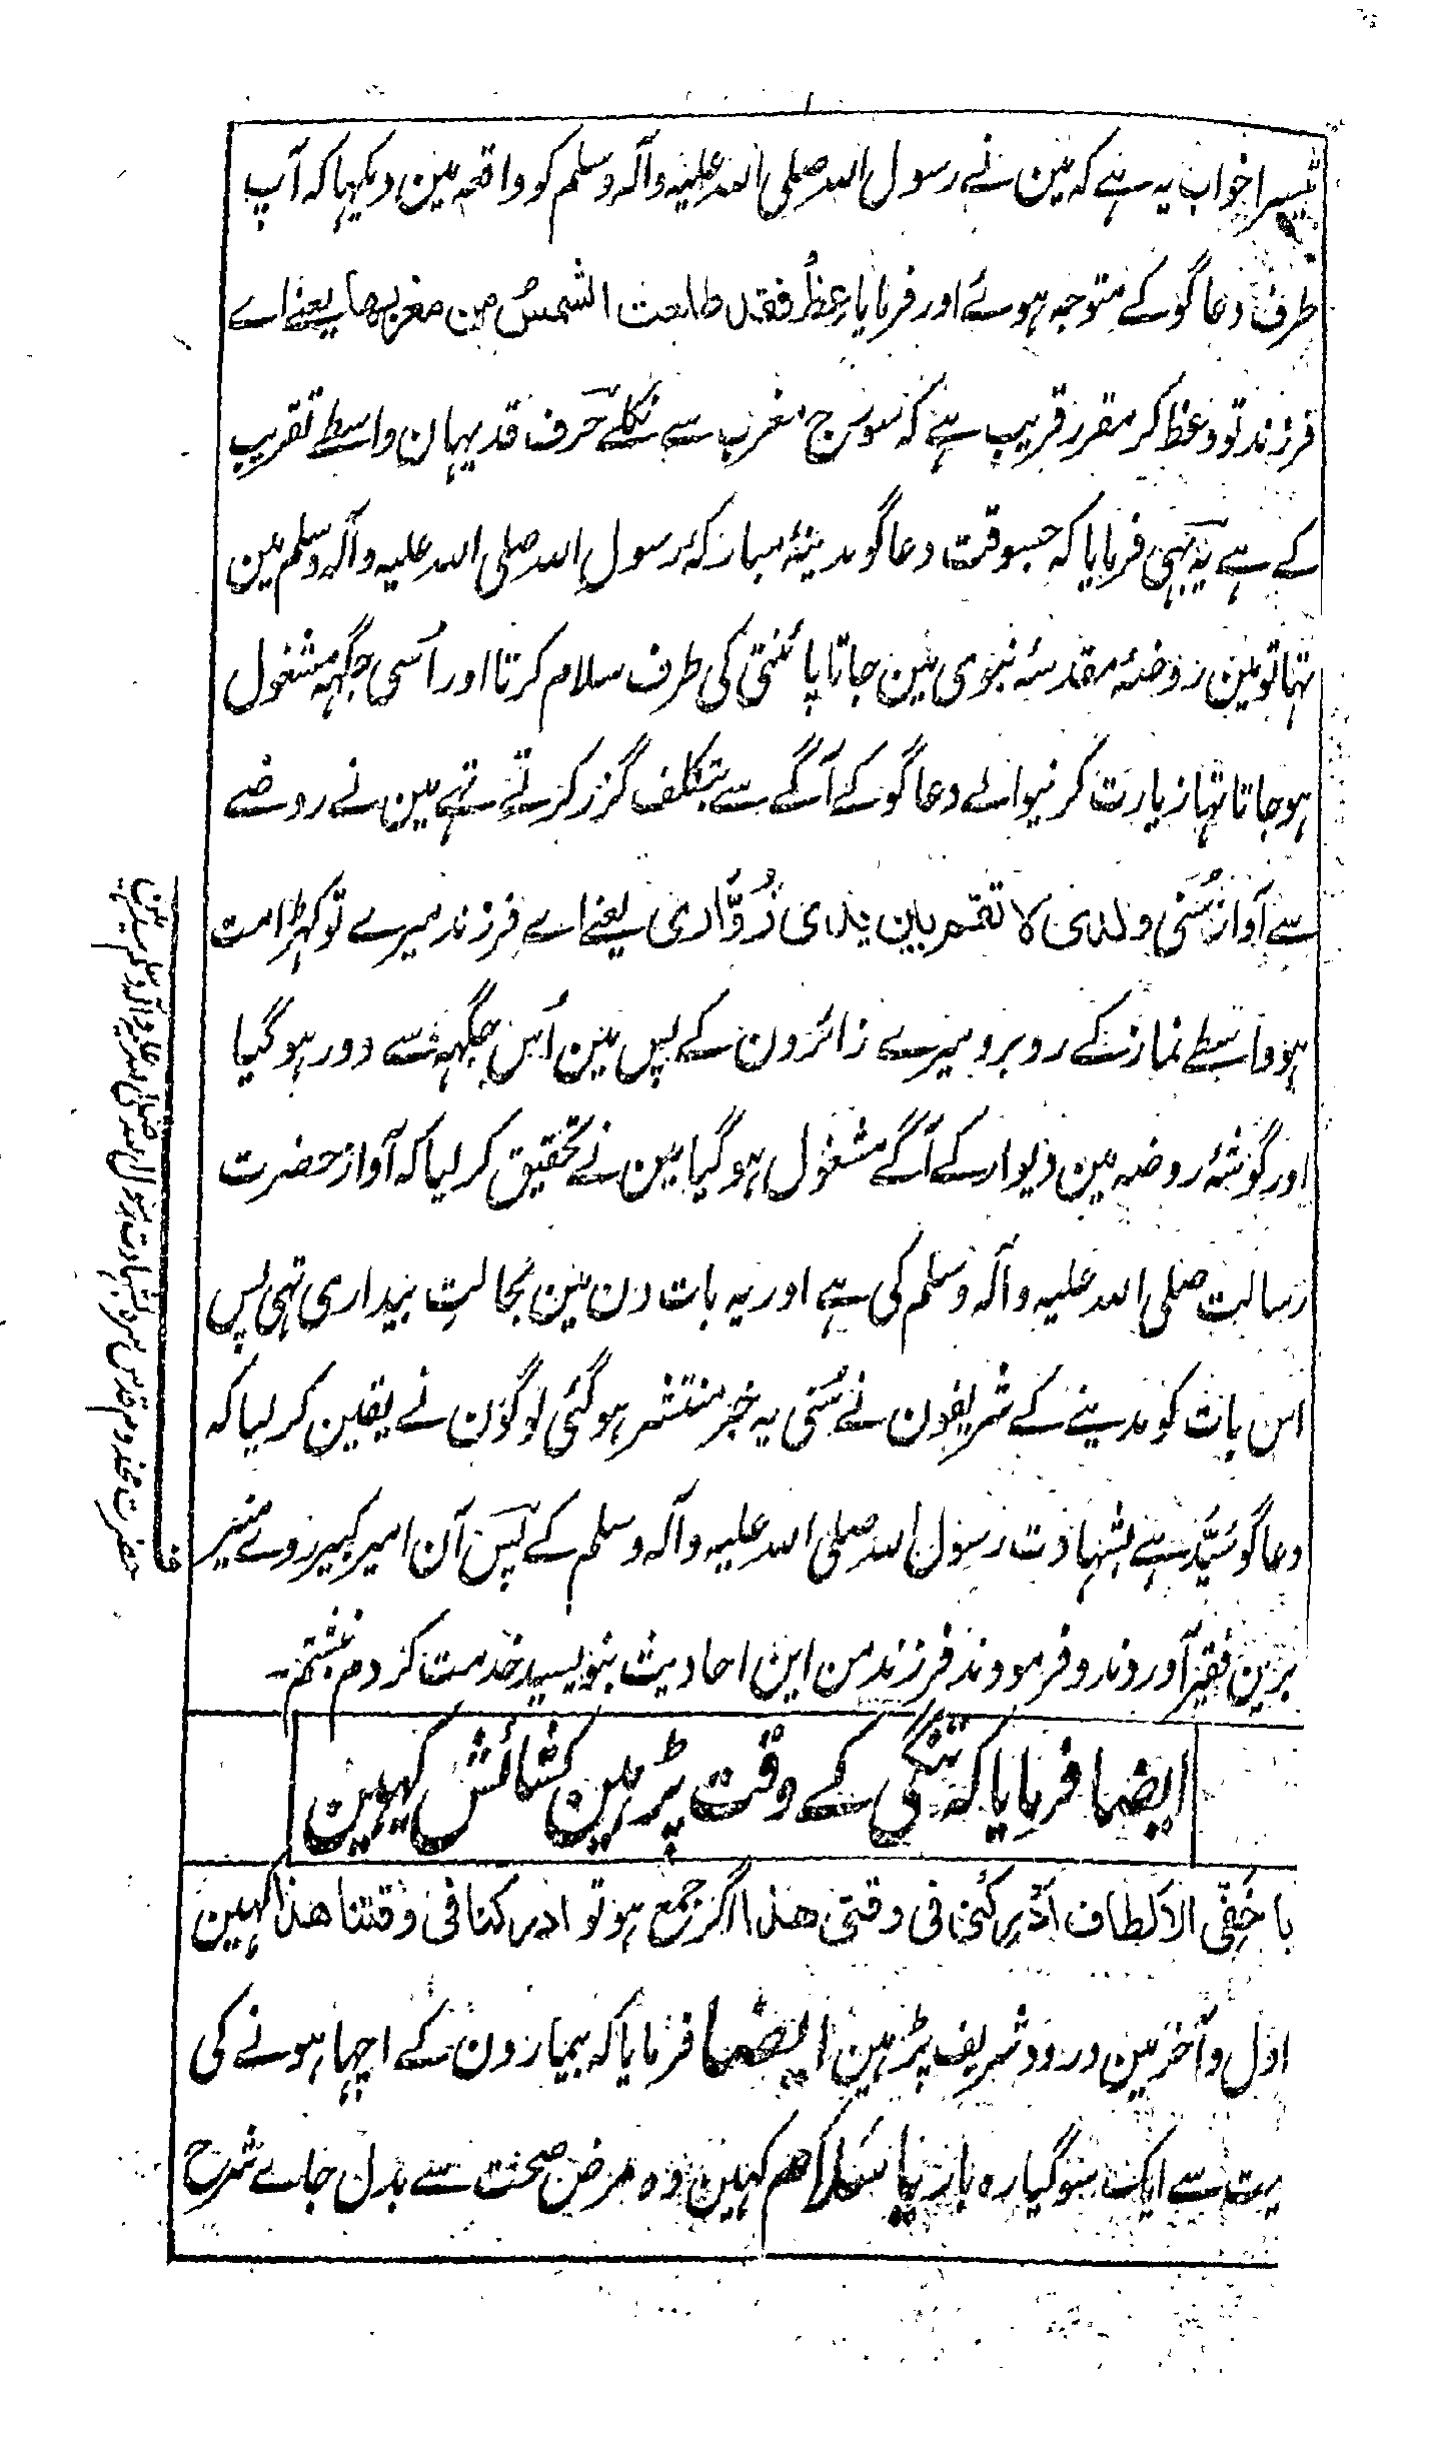 تیسرا خواب یہ ہے کہ مین نے رسول اللہ صلی اللہ علیہ وآلہ وسلم کو واقعہ مین دیکہا کہ آپ
طرف دعا گو کے متوجہ ہوئے اور فرمایا عِظْ فقد طلعت الشمسُ من مغربھا یعنے اے
فرزند تو وعظ کر مقرر قریب ہے کہ سورج مغرب سے نکلے حرف قد یہان واسطے تقریب
کے ہے یہ بہی فرمایا کہ جسوقت دعا گو مدینۂ مبارکۂ رسول اللہ صلی اللہ علیہ وآلہ وسلم مین
تہا تو مین روضۂ مقدسۂ نبوی مین جاتا پائنتی کی طرف سلام کرتا اور اُسی جگہہ مشغول
ہو جاتا تہا زیارت کرنیوالے دعا گو کے آگے سے بتکلف گزر کرتے تہے مین نے روضے
سے آواز سُنی ولدی لا تقم بین یدی زُوَّاری یعنے اے فرزند میرے تو کہڑا مت
ہو واسطے نماز کے روبرو میرے زائرون کے پس مین اُس جگہہ سے دور ہو گیا
اور گوشۂ روضہ مین دیوار کے آگے مشغول ہو گیا مین نے تحقیق کر لیا کہ آواز حضرت
رسالت صلی اللہ علیہ وآلہ وسلم کی ہے اور یہ بات دن مین بحالتِ بیداری تہی پس
اس بات کو مدینے کے شریفون نے سُنی یہ خبر منتشر ہو گئی لوگون نے یقین کر لیا کہ
دعا گو سیّد ہے بشہادت رسول اللہ صلی اللہ علیہ وآلہ وسلم کے پس آن امیر کبیر روے منیر
برین فقیر آوردند و فرمودند فرزند من این احادیث بنویسید خدمت کردم نبشتم۔
ایضا فرمایا کہ تنگی کے وقت پڑہین کشائش کہین
یا خَفِّی الالطاف اَدْرِکْنی فی وقتی ھذا اگر جمع ہو تو ادرکنا فی وقتنا ھذا کہین
اول و آخر مین درود شریف پڑہین ایضا فرمایا کہ بیمارون کے اچہا ہونے کی
نیت سے ایک سو گیارہ بار یا سَلام کہین وہ مرض صحت سے بدل جاے شرح
حضرت مخدوم قدس سرہ بشہادت رسول اللہ صلی اللہ علیہ وآلہ وسلم سید ہین